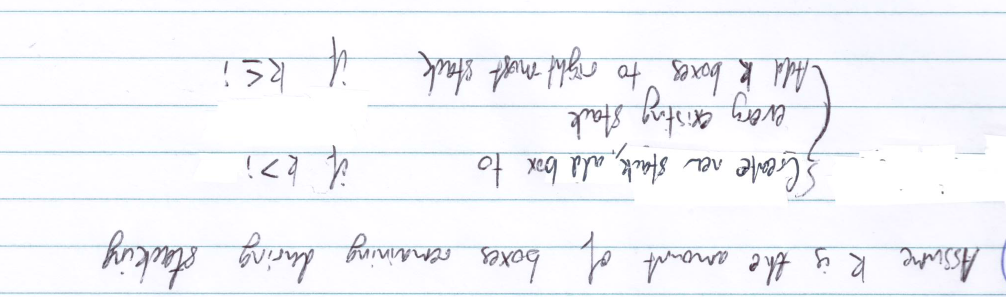 Assume k is the amount of boxes remaining during stacking
{ Create new stack, add box to if k > i
every existing stack
Add k boxes to right most stack if k ≤ i